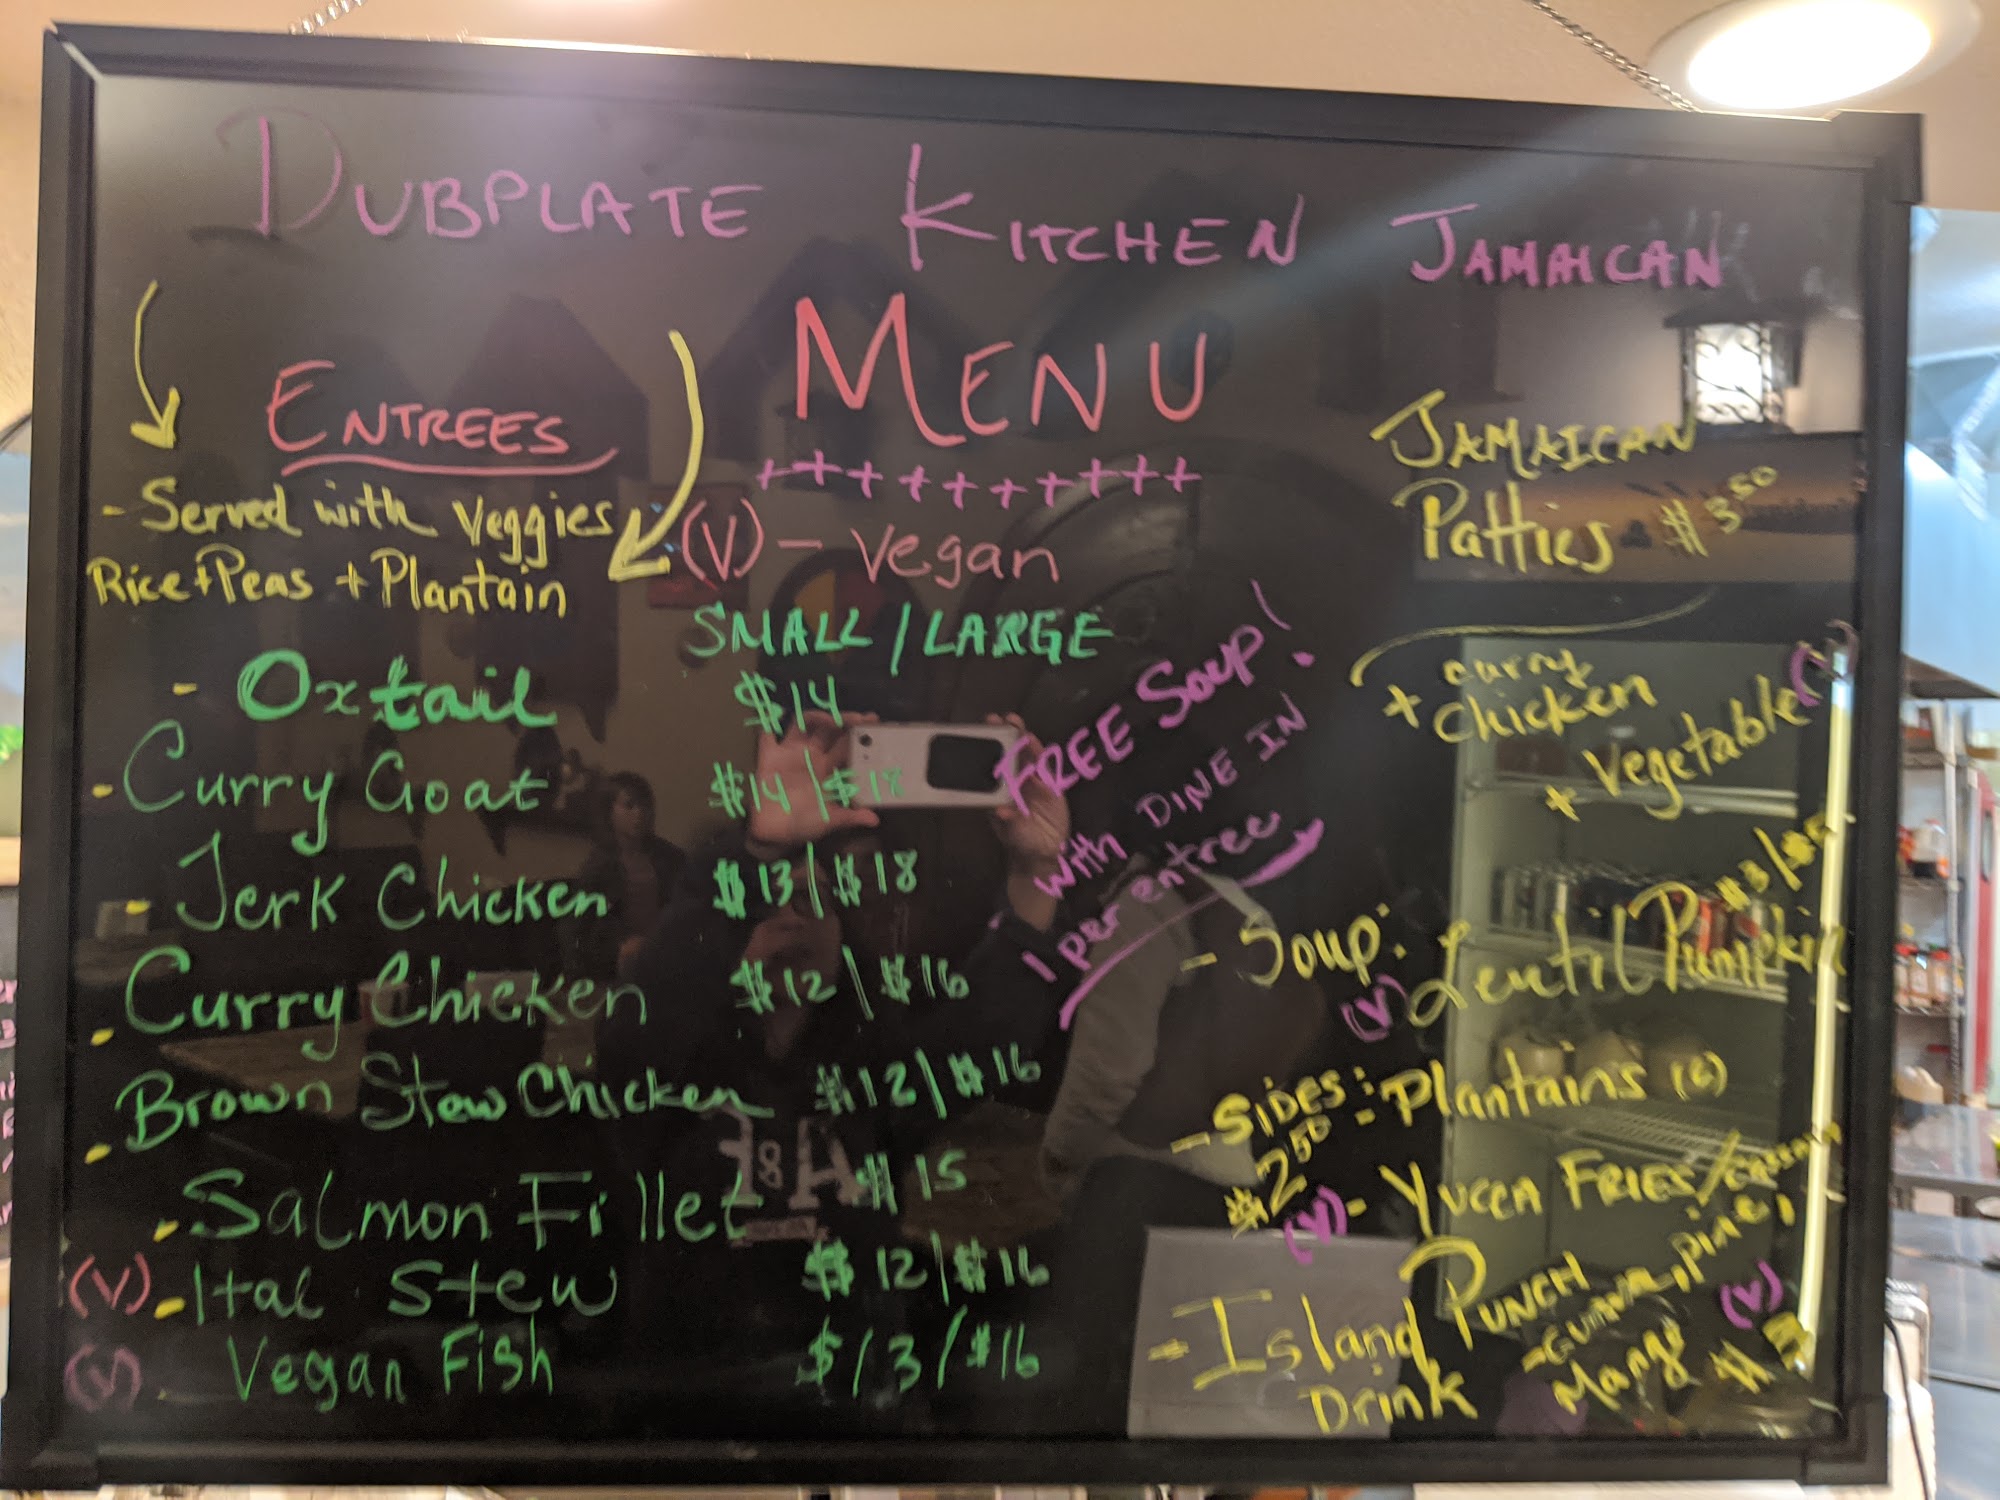 DUBPLATE KITCHEN JAMAICAN
MENU
+++++++++
ENTREES
- Served with Veggies
Rice+Peas + Plantain
(V) - Vegan
SMALL / LARGE
- Oxtail $14
- Curry Goat $14 | $18
- Jerk Chicken $13 | $18
- Curry Chicken $12 | $16
- Brown Stew Chicken $12 | $16
- Salmon Fillet $15
(V) - Ital Stew $12 | $16
(V) Vegan Fish $13 / $16
FREE Soup!
with DINE IN
1 per entree
JAMAICAN
Patties $3.50
+ curry
chicken
+ Vegetable (V)
$3/$5
- Soup: Lentil Pumpkin
(V)
- SIDES: - Plantains (6)
$2.50
(V) - YUCCA FRIES/
- Island PUNCH
Drink
- GUAVA, PINE,
Mango (V)